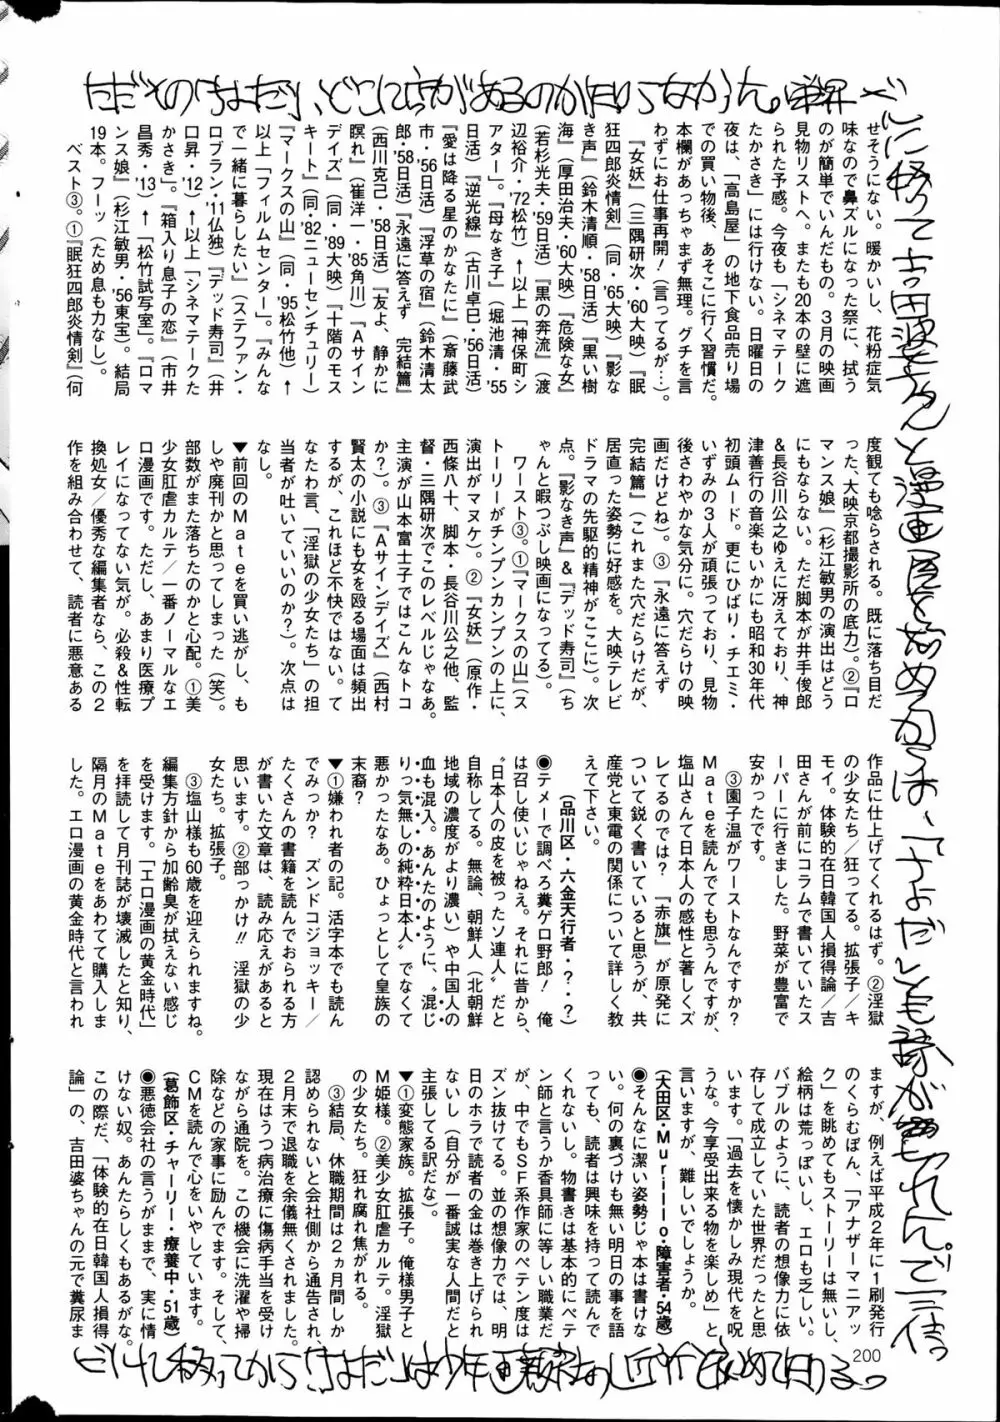 せそうにない。暖かいし、花粉症気
味なので鼻ズルになった祭に、拭う
のが簡単でいんだもの。3月の映画
見物リストへ。またも20本の壁に遮
られた予感。今夜も「シネマテーク
たかさき」には行けない。日曜日の
夜は、「高島屋」の地下食品売り場
での買い物後、あそこに行く習慣だ。
本欄があっちゃまず無理。グチを言
わずにお仕事再開!(言ってるが…。)
『女妖』(三隅研次・'60大映)『眠
狂四郎炎情剣』(同・'65大映)『影な
き声』(鈴木清順・'58日活)『黒い樹
海』(厚田治夫・'60大映)『危険な女』
(若杉光夫・'59日活)『黒の奔流』(渡
辺裕介・'72松竹)↑以上「神保町シ
アター」。『母なき子』(堀池清・'55
日活)『逆光線』(古川卓巳・'56日活)
『愛は降る星のかなたに』(斎藤武
市・'56日活)『浮草の宿』(鈴木清太
郎・'58日活)『永遠に答えず 完結篇』
(西川克己・'58日活)『友よ、静かに
瞑れ』(崔洋一・'85角川)『Aサイン
デイズ』(同・'89大映)『十階のモス
キート』(同・'82ニューセンチュリー)
『マークスの山』(同・'95松竹他)↑
以上「フィルムセンター」。『みんな
で一緒に暮らしたい』(ステファン・
ロブラン・'11仏独)『デッド寿司』(井
口昇・'12)↑以上「シネマテークた
かさき」。『箱入り息子の恋』(市井
昌秀・'13)↑「松竹試写室」。『ロマ
ンス娘』(杉江敏男・'56東宝)。結局
19本。フーッ(ため息も力なし)。
ベスト③。①『眠狂四郎炎情剣』(何
度観ても唸らされる。既に落ち目だ
った、大映京都撮影所の底力)。②『ロ
マンス娘』(杉江敏男の演出はどう
にもならない。ただ脚本が井手俊郎
&長谷川公之ゆえに冴えており、神
津善行の音楽もいかにも昭和30年代
初頭ムード。更にひばり・チエミ・
いずみの3人が頑張っており、見物
後さわやかな気分に。穴だらけの映
画だけどね)。③『永遠に答えず
完結篇』(これまた穴だらけだが、
居直った姿勢に好感を。大映テレビ
ドラマの先駆的精神がここに)。次
点。『影なき声』&『デッド寿司』(ち
ゃんと暇つぶし映画になってる)。
ワースト③。①『マークスの山』(ス
トーリーがチンプンカンプンの上に、
演出がマヌケ)。②『女妖』(原作・
西條八十、脚本・長谷川公之他、監
督・三隅研次でこのレベルじゃなあ。
主演が山本富士子ではこんなトコ
か?)。③『Aサインデイズ』(西村
賢太の小説にも女を殴る場面は頻出
するが、これほど不快ではない。て
なたわ言、「淫獄の少女たち」の担
当者が吐いていいのか?)。次点は
なし。
▼前回のMateを買い逃がし、も
しや廃刊かと思ってしまった(笑)。
部数がまた落ちたのかと心配。①美
少女肛虐カルテ/一番ノーマルなエ
ロ漫画です。ただし、あまり医療プ
レイになってない気が。必殺&性転
換処女/優秀な編集者なら、この2
作を組み合わせて、読者に悪意ある
作品に仕上げてくれるはず。②淫獄
の少女たち/狂ってる。拡張子/キ
モイ。体験的在日韓国人損得論/吉
田さんが前にコラムで書いていたス
ーパーに行きました。野菜が豊富で
安かったです。
③園子温がワーストなんですか?
Mateを読んでても思うんですが、
塩山さんて日本人の感性と著しくズ
レてるのでは?『赤旗』が原発に
ついて鋭く書いていると思うが、共
産党と東電の関係について詳しく教
えて下さい。
(品川区・六金天行者・?・?)
●テメーで調べろ糞ゲロ野郎!俺
は召し使いじゃねえ。それに昔から、
“日本人の皮を被ったソ連人”だと
自称してる。無論、朝鮮人(北朝鮮
地域の濃度がより濃い)や中国人の
血も混入。あんたのように、“混じ
りっ気無しの純粋日本人”でなくて
悪かったなあ。ひょっとして皇族の
末裔?
▼①嫌われ者の記。活字本でも読ん
でみっか?ズンドコジョッキー/
たくさんの書籍を読んでおられる方
が書いた文章は、読み応えがあると
思います。②部っかけ!!淫獄の少
女たち。拡張子。
③塩山様も60歳を迎えられますね。
編集方針から加齢臭が拭えない感じ
を受けます。「エロ漫画の黄金時代」
を拝読して月刊誌が壊滅したと知り、
隔月のMateをあわてて購入しま
した。エロ漫画の黄金時代と言われ
ますが、例えば平成2年に1刷発行
のくらむぼん、「アナザーマニアッ
ク」を眺めてもストーリーは無いし、
絵柄は荒っぽいし、エロも乏しい。
バブルのように、読者の想像力に依
存して成立していた世界だったと思
います。「過去を懐かしみ現代を呪
うな。今享受出来る物を楽しめ」と
言いますが、難しいでしょうか。
(大田区・Murillo・障害者・54歳)
●そんなに潔い姿勢じゃ本は書けな
い。何の裏づけも無い明日の事を語
っても、読者は興味を持って読んで
くれないし。物書きは基本的にペテ
ン師と言うか香具師に等しい職業だ
が、中でもSF系作家のペテン度は
ズン抜けてる。並の想像力では、明
日のホラで読者の金は巻き上げられ
ないし(自分が一番誠実な人間だと
主張してる訳だな)。
▼①変態家族。拡張子。俺様男子と
M姫様。②美少女肛虐カルテ。淫獄
の少女たち。狂れ腐れ焦がれる。
③結局、休職期間は2ヵ月間しか
認められないと会社側から通告され、
2月末で退職を余儀無くされました。
現在はうつ病治療に傷病手当を受け
ながら通院を。この機会に洗濯や掃
除などの家事に励んでます。そして、
CMを読んで心をいやしています。
(葛飾区・チャーリー・療養中・51歳)
●悪徳会社の言うがままで、実に情
けない奴。あんたらしくもあるがな。
この際だ、「体験的在日韓国人損得
論」の、吉田婆ちゃんの元で糞尿ま
200